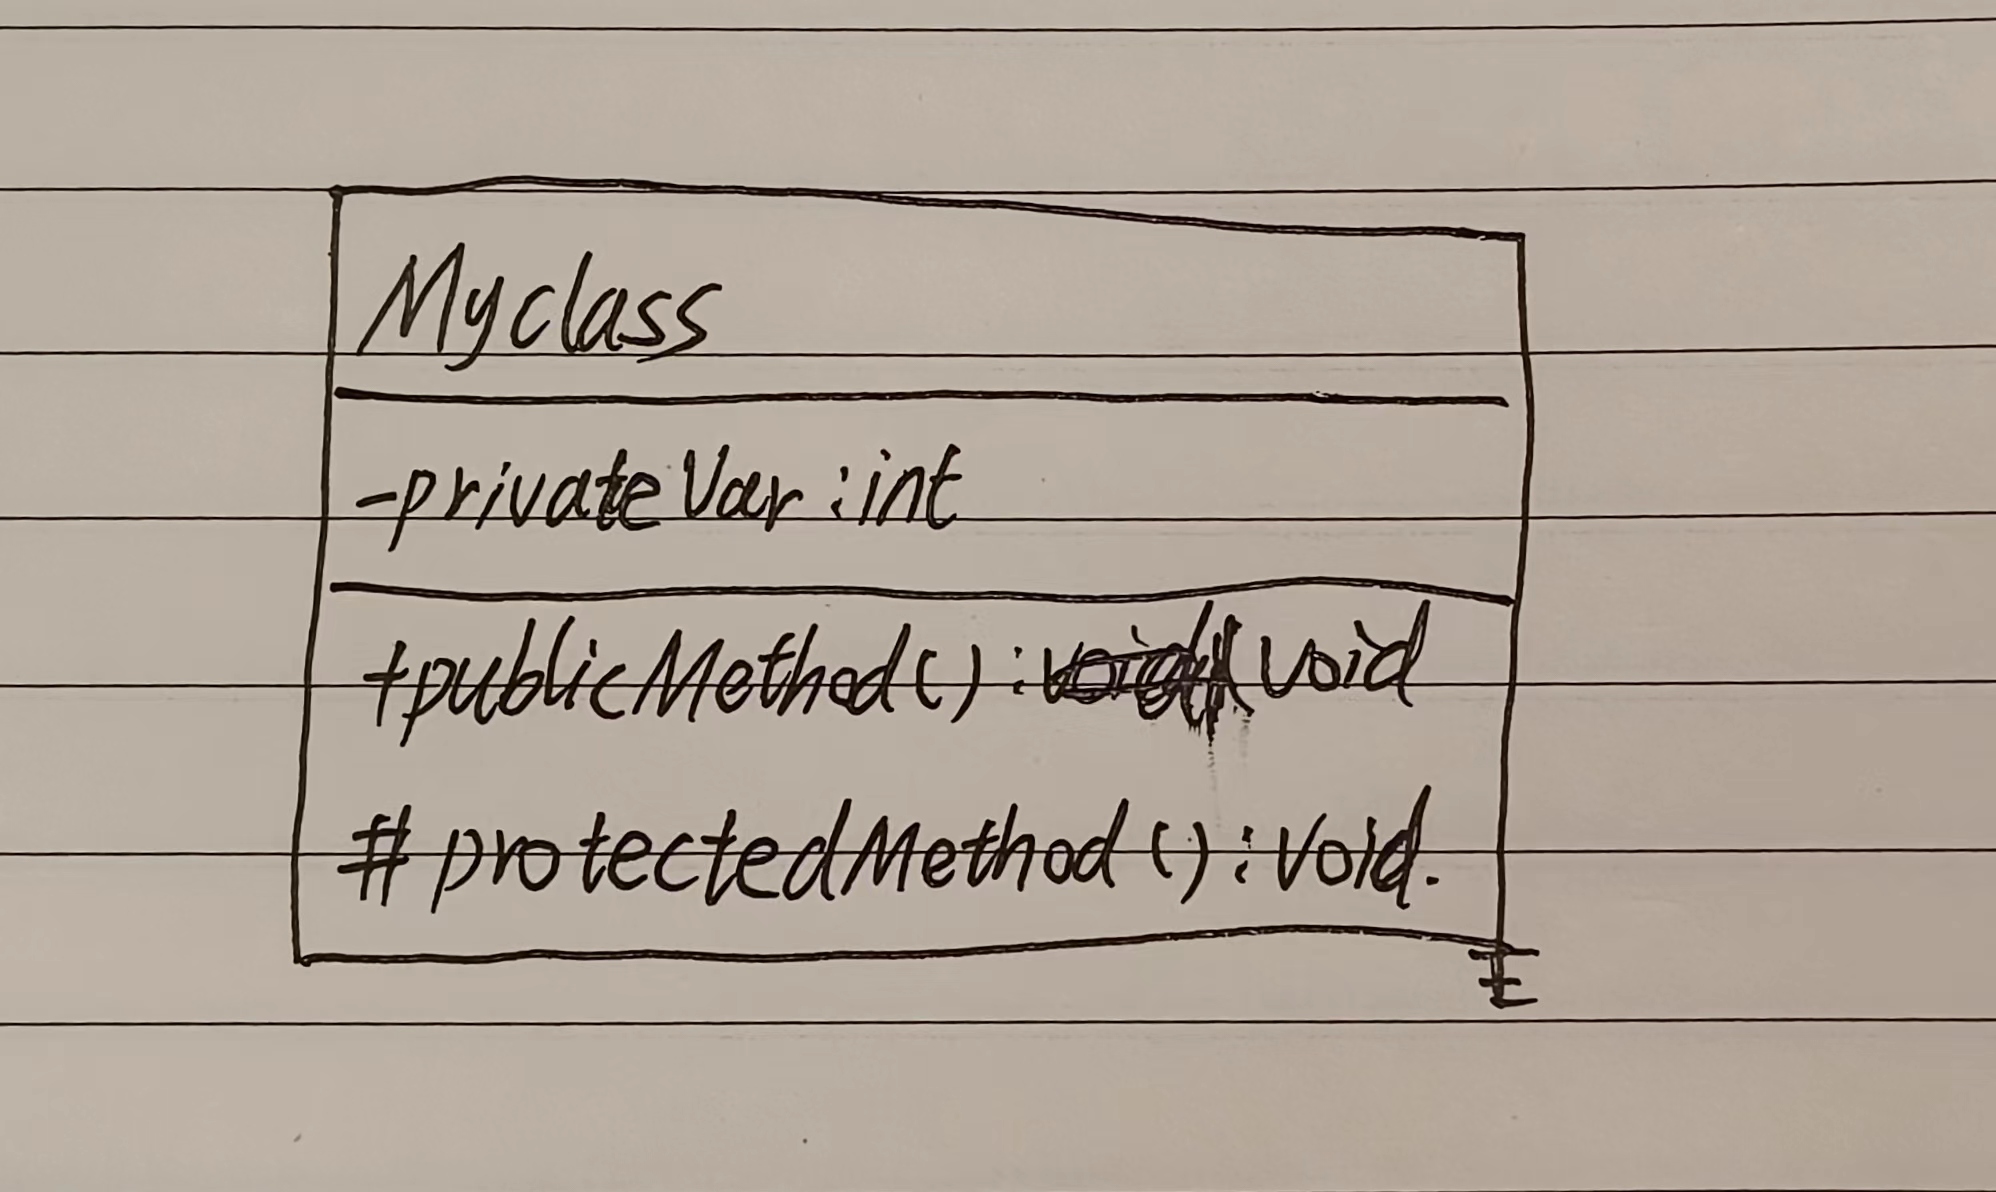 Myclass
-privateVar:int
+publicMethod():void
#protectedMethod():void.